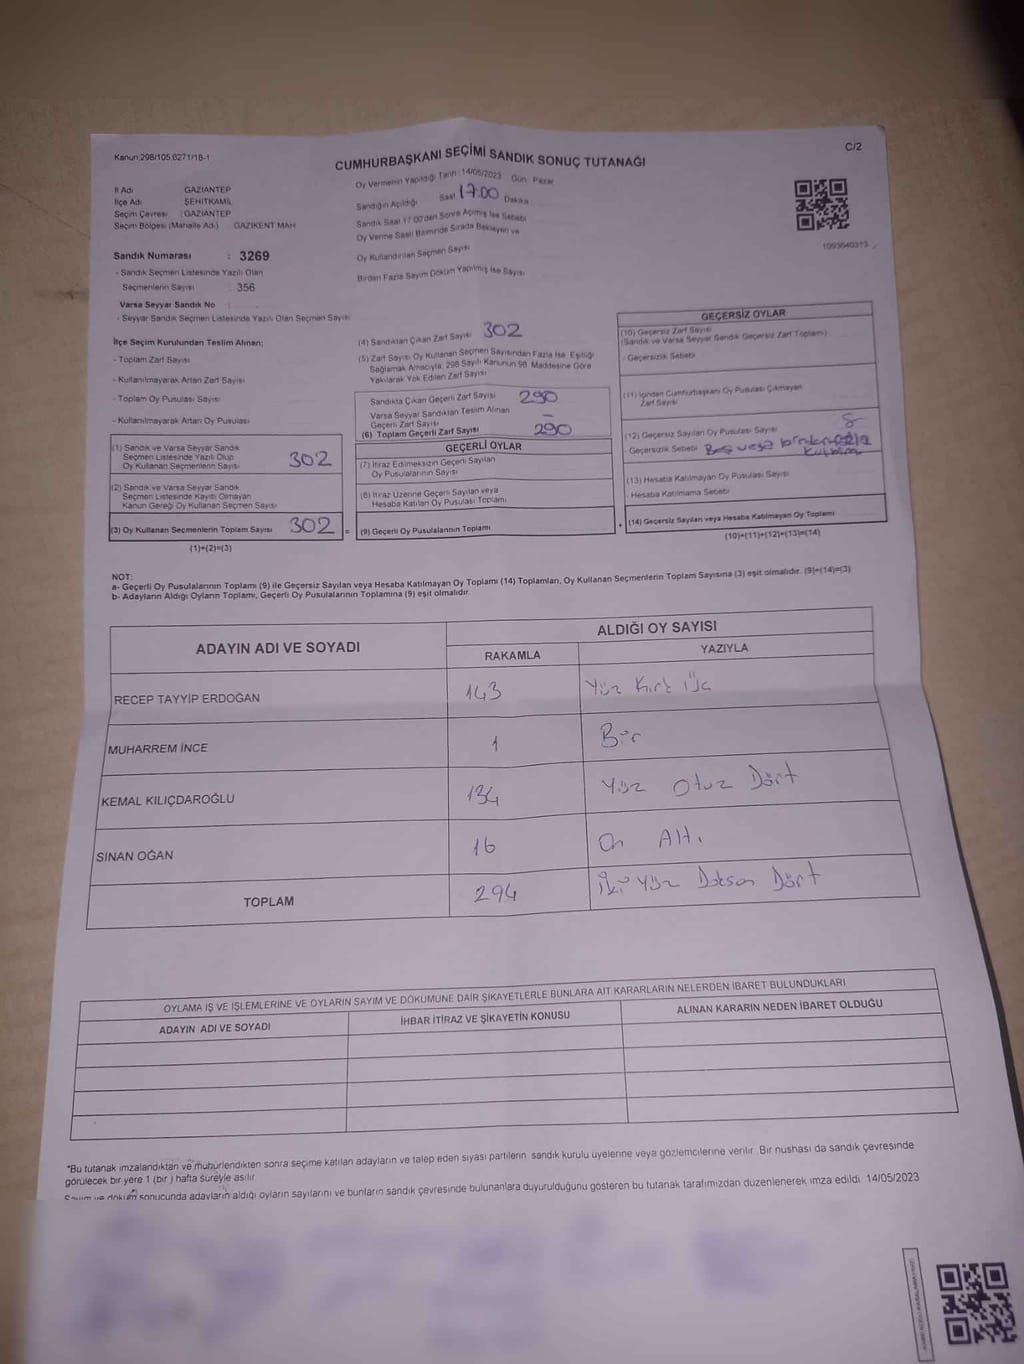 Kanun:298/105,6271/18-1
C/2
CUMHURBAŞKANI SEÇİMİ SANDIK SONUÇ TUTANAĞI
İl Adı : GAZİANTEP
İlçe Adı : ŞEHİTKAMİL
Seçim Çevresi : GAZİANTEP
Seçim Bölgesi (Mahalle Adı) : GAZİKENT MAH
Sandık Numarası : 3269
- Sandık Seçmen Listesinde Yazılı Olan
Seçmenlerin Sayısı : 356
Varsa Seyyar Sandık No :
- Seyyar Sandık Seçmen Listesinde Yazılı Olan Seçmen Sayısı
Oy Vermenin Yapıldığı Tarih : 14/05/2023 Gün Pazar
Sandığın Açıldığı Saat 17:00 Dakika
Sandık Saat 17:00'den Sonra Açılmış İse Sebebi
Oy Verme Saati Bitiminde Sırada Bekleyen ve
Oy Kullandırılan Seçmen Sayısı
Birden Fazla Sayım Döküm Yapılmış İse Sayısı
1093640313
İlçe Seçim Kurulundan Teslim Alınan;
- Toplam Zarf Sayısı
- Kullanılmayarak Artan Zarf Sayısı
- Toplam Oy Pusulası Sayısı
- Kullanılmayarak Artan Oy Pusulası
(1) Sandık ve Varsa Seyyar Sandık
Seçmen Listesinde Yazılı Olup
Oy Kullanan Seçmenlerin Sayısı 302
(2) Sandık ve Varsa Seyyar Sandık
Seçmen Listesinde Kayıtlı Olmayan
Kanun Gereği Oy Kullanan Seçmen Sayısı
(3) Oy Kullanan Seçmenlerin Toplam Sayısı 302 =
(1)+(2)=(3)
(4) Sandıktan Çıkan Zarf Sayısı 302
(5) Zarf Sayısı Oy Kullanan Seçmen Sayısından Fazla İse, Eşitliği
Sağlamak Amacıyla, 298 Sayılı Kanunun 98. Maddesine Göre
Yakılarak Yok Edilen Zarf Sayısı
Sandıkta Çıkan Geçerli Zarf Sayısı 290
Varsa Seyyar Sandıktan Teslim Alınan
Geçerli Zarf Sayısı -
(6) Toplam Geçerli Zarf Sayısı 290
GEÇERLİ OYLAR
(7) İtiraz Edilmeksizin Geçerli Sayılan
Oy Pusulalarının Sayısı
(8) İtiraz Üzerine Geçerli Sayılan veya
Hesaba Katılan Oy Pusulası Toplamı
(9) Geçerli Oy Pusulalarının Toplamı +
GEÇERSİZ OYLAR
(10) Geçersiz Zarf Sayısı
(Sandık ve Varsa Seyyar Sandık Geçersiz Zarf Toplamı)
- Geçersizlik Sebebi
(11) İçinden Cumhurbaşkanı Oy Pusulası Çıkmayan
Zarf Sayısı
(12) Geçersiz Sayılan Oy Pusulası Sayısı 8
- Geçersizlik Sebebi Boş veya birden fazla
(13) Hesaba Katılmayan Oy Pusulası Sayısı
- Hesaba Katılmama Sebebi
(14) Geçersiz Sayılan veya Hesaba Katılmayan Oy Toplamı
(10)+(11)+(12)+(13)=(14)
NOT:
a- Geçerli Oy Pusulalarının Toplamı (9) ile Geçersiz Sayılan veya Hesaba Katılmayan Oy Toplamı (14) Toplamları, Oy Kullanan Seçmenlerin Toplam Sayısına (3) eşit olmalıdır. (9)+(14)=(3)
b- Adayların Aldığı Oyların Toplamı, Geçerli Oy Pusulalarının Toplamına (9) eşit olmalıdır.
ADAYIN ADI VE SOYADI
ALDIĞI OY SAYISI
RAKAMLA YAZIYLA
RECEP TAYYİP ERDOĞAN 143 Yüz Kırk Üç
MUHARREM İNCE 1 Bir
KEMAL KILIÇDAROĞLU 134 Yüz Otuz Dört
SİNAN OĞAN 16 On Altı
TOPLAM 294 İki Yüz Doksan Dört
OYLAMA İŞ VE İŞLEMLERİNE VE OYLARIN SAYIM VE DÖKÜMÜNE DAİR ŞİKAYETLERLE BUNLARA AİT KARARLARIN NELERDEN İBARET BULUNDUKLARI
ADAYIN ADI VE SOYADI İHBAR İTİRAZ VE ŞİKAYETİN KONUSU ALINAN KARARIN NEDEN İBARET OLDUĞU
*Bu tutanak imzalandıktan ve mühürlendikten sonra seçime katılan adayların ve talep eden siyasi partilerin sandık kurulu üyelerine veya gözlemcilerine verilir. Bir nüshası da sandık çevresinde
görülecek bir yere 1 (bir) hafta süreyle asılır.
Sayım ve döküm sonucunda adayların aldığı oyların sayılarını ve bunların sandık çevresinde bulunanlara duyurulduğunu gösteren bu tutanak tarafımızdan düzenlenerek imza edildi. 14/05/2023